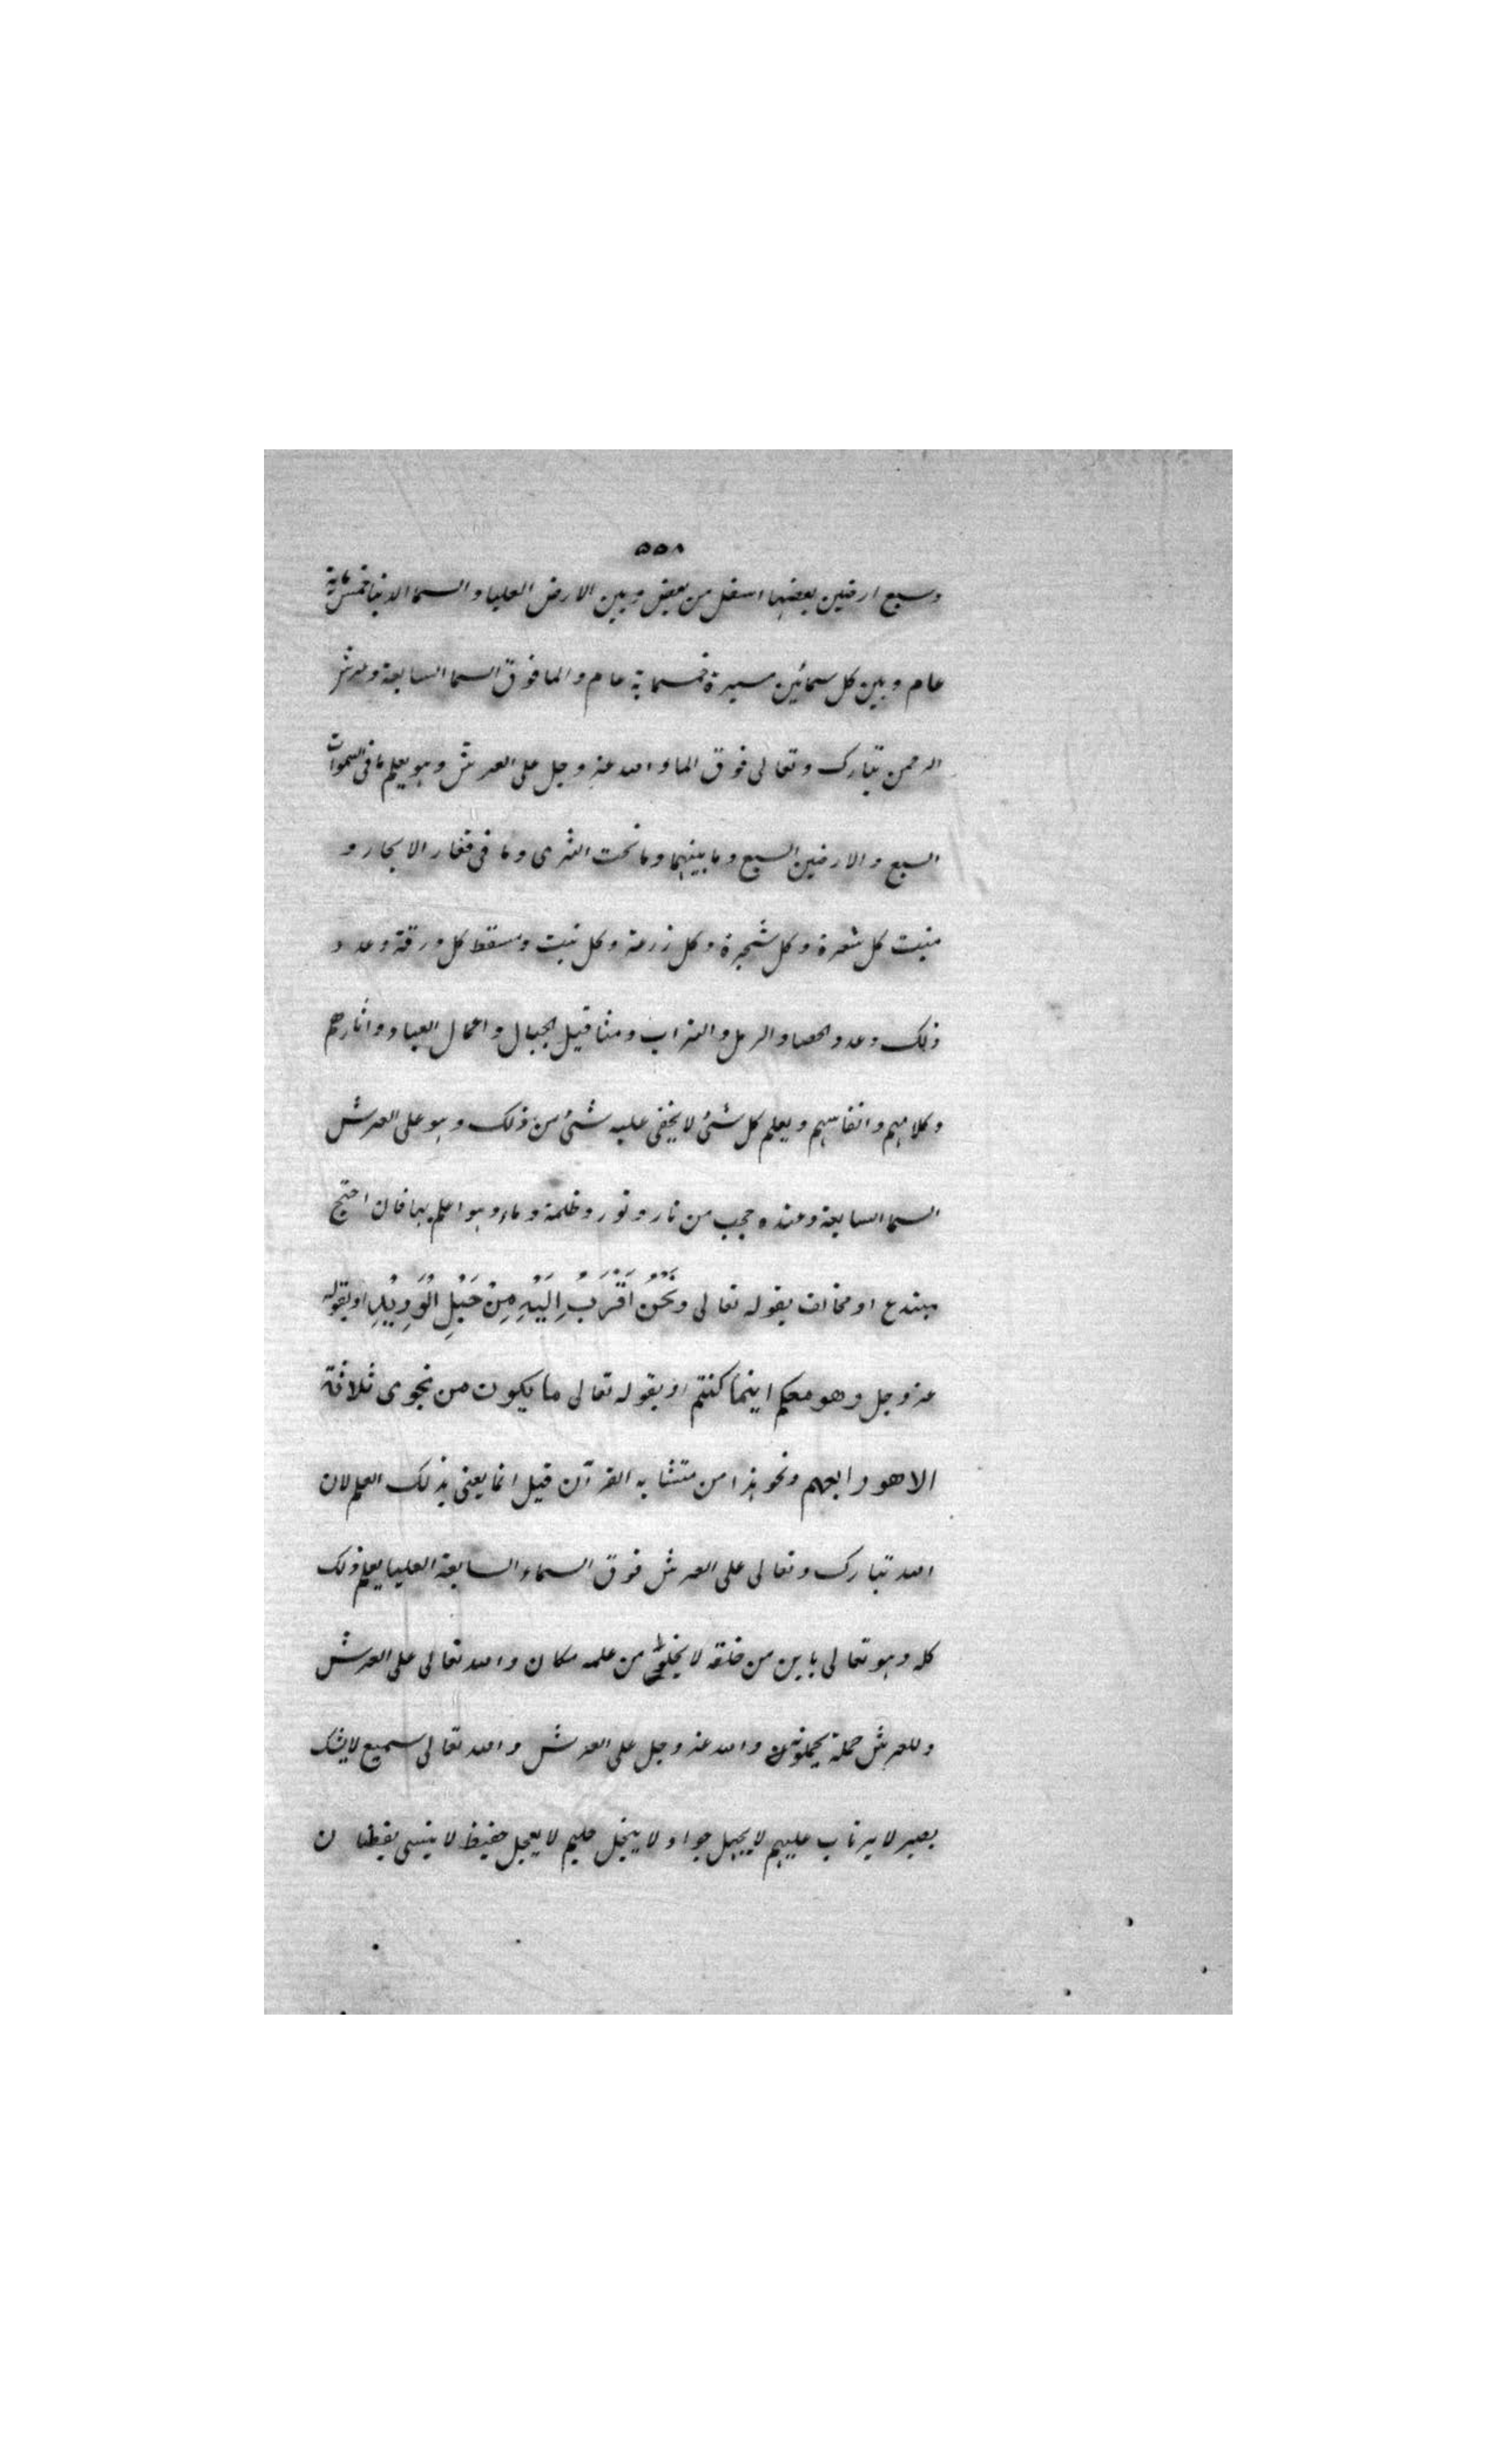 ٥٥٨
وسبع ارضين بعضها اسفل من بعض وبين الارض العليا والسما الدنيا خمسماية
عام وبين كل سمائين مسيرة خمسماية عام والما فوق السما السابعة وعرش
الرحمن تبارك وتعالى فوق الما والله عز وجل على العرش وهو يعلم ما فى السموات
السبع والارضين السبع وما بينهما وما تحت الثرى وما فى قعار الابحار و
منبت كل شعرة وكل شجرة وكل زرعة وكل نبت ومسقط كل ورقة وعدد
ذلك وعدد الحصا والرمل والتراب ومثاقيل الجبال واعمال العباد واثارهم
وكلامهم وانفاسهم ويعلم كل شئ لا يخفى عليه شئ من ذلك وهو على العرش
السما السابعة وعنده حجب من نار ونور وظلمة وماء وهو اعلم بها فان احتج
مبتدع او مخالف بقوله تعالى وَنَحْنُ اَقْرَبُ اِلَيْهِ مِنْ حَبْلِ الْوَرِيْدِ او بقوله
عز وجل وهو معكم اينما كنتم او بقوله تعالى ما يكون من نجوى ثلاثة
الا هو رابعهم ونحو هذا من متشابه القرآن قيل انما يعنى بذلك العلم لان
الله تبارك وتعالى على العرش فوق السماء السابعة العليا يعلم ذلك
كله وهو تعالى باين من خلقه لا يخلو من علمه مكان والله تعالى على العرش
وللعرش حملة يحملونه والله عز وجل على العرش والله تعالى سميع لا يشك
بصير لا يرتاب عليهم لا يجهل جواد لا يبخل حليم لا يعجل حفيظ لا ينسى يقظان